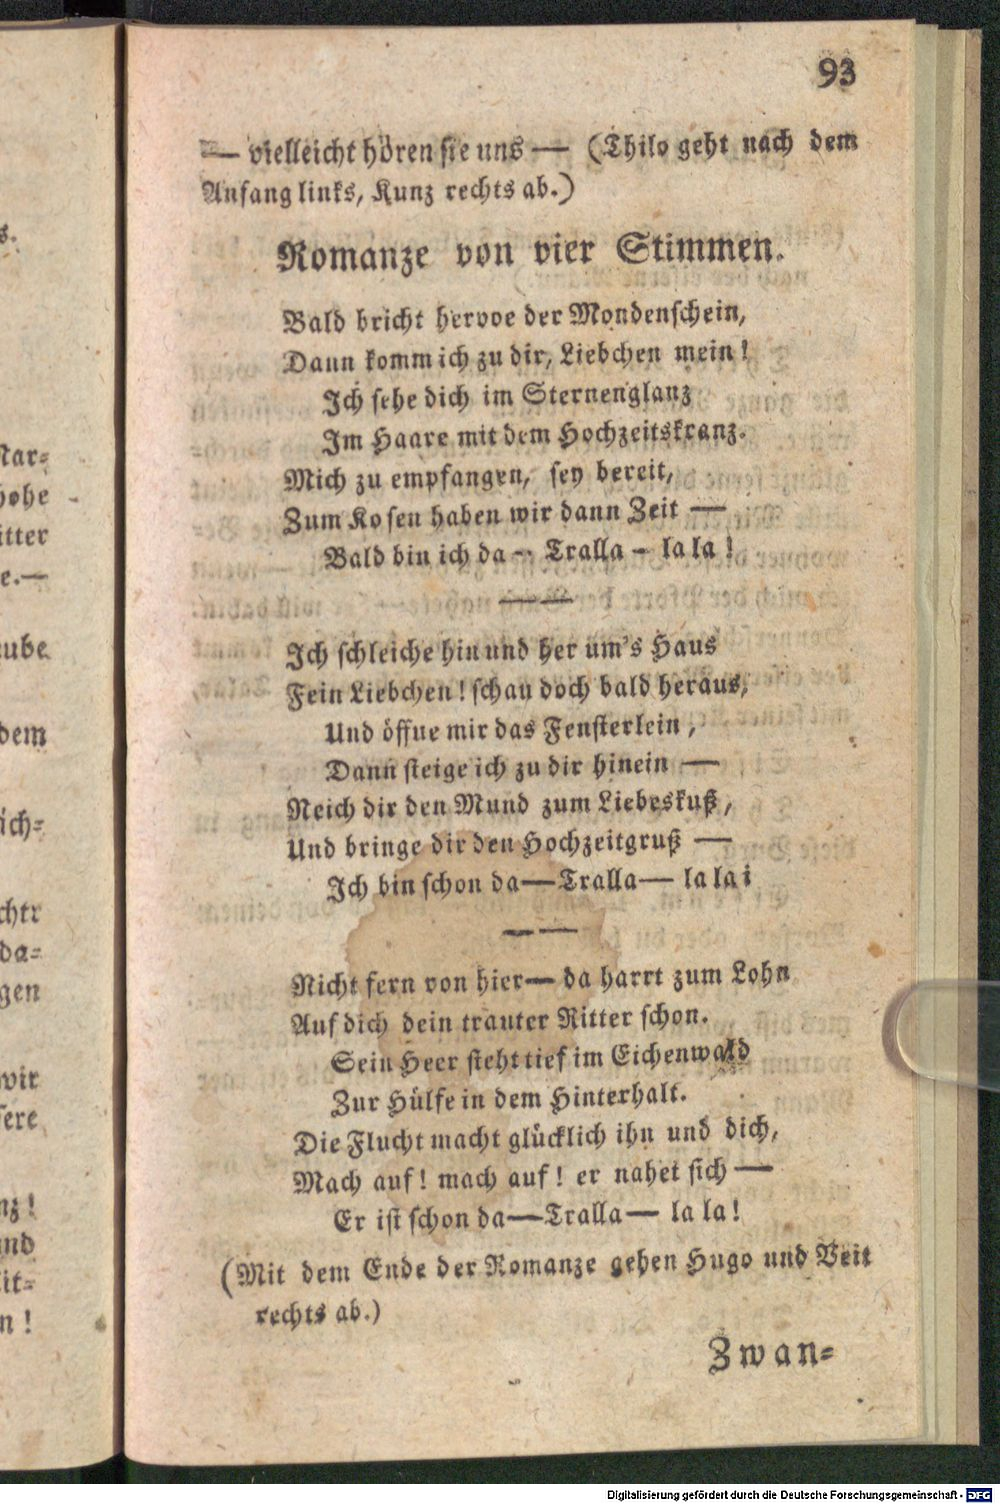 93
— vielleicht hören sie uns — (Thilo geht nach dem
Anfang links, Kunz rechts ab.)
Romanze von vier Stimmen.
Bald bricht hervoe der Mondenschein,
Dann komm ich zu dir, Liebchen mein!
Ich sehe dich im Sternenglanz
Im Haare mit dem Hochzeitskranz.
Mich zu empfangen, sey bereit,
Zum Kosen haben wir dann Zeit —
Bald bin ich da — Tralla — la la!
Ich schleiche hin und her um's Haus
Fein Liebchen! schau doch bald heraus,
Und öffne mir das Fensterlein,
Dann steige ich zu dir hinein —
Reich dir den Mund zum Liebeskuß,
Und bringe dir den Hochzeitgruß —
Ich bin schon da — Tralla — la la i
Nicht fern von hier — da harrt zum Lohn
Auf dich dein trauter Ritter schon.
Sein Heer steht tief im Eichenwald
Zur Hülfe in dem Hinterhalt.
Die Flucht macht glücklich ihn und dich,
Mach auf! mach auf! er nahet sich —
Er ist schon da — Tralla — la la!
(Mit dem Ende der Romanze gehen Hugo und Veit
rechts ab.)
Zwan=
s.
Nar=
hohe
itter
e.—
aube
dem
äch=
chtr
da=
gen
wir
sere
nz!
und
it=
n!
Digitalisierung gefördert durch die Deutsche Forschungsgemeinschaft - DFG